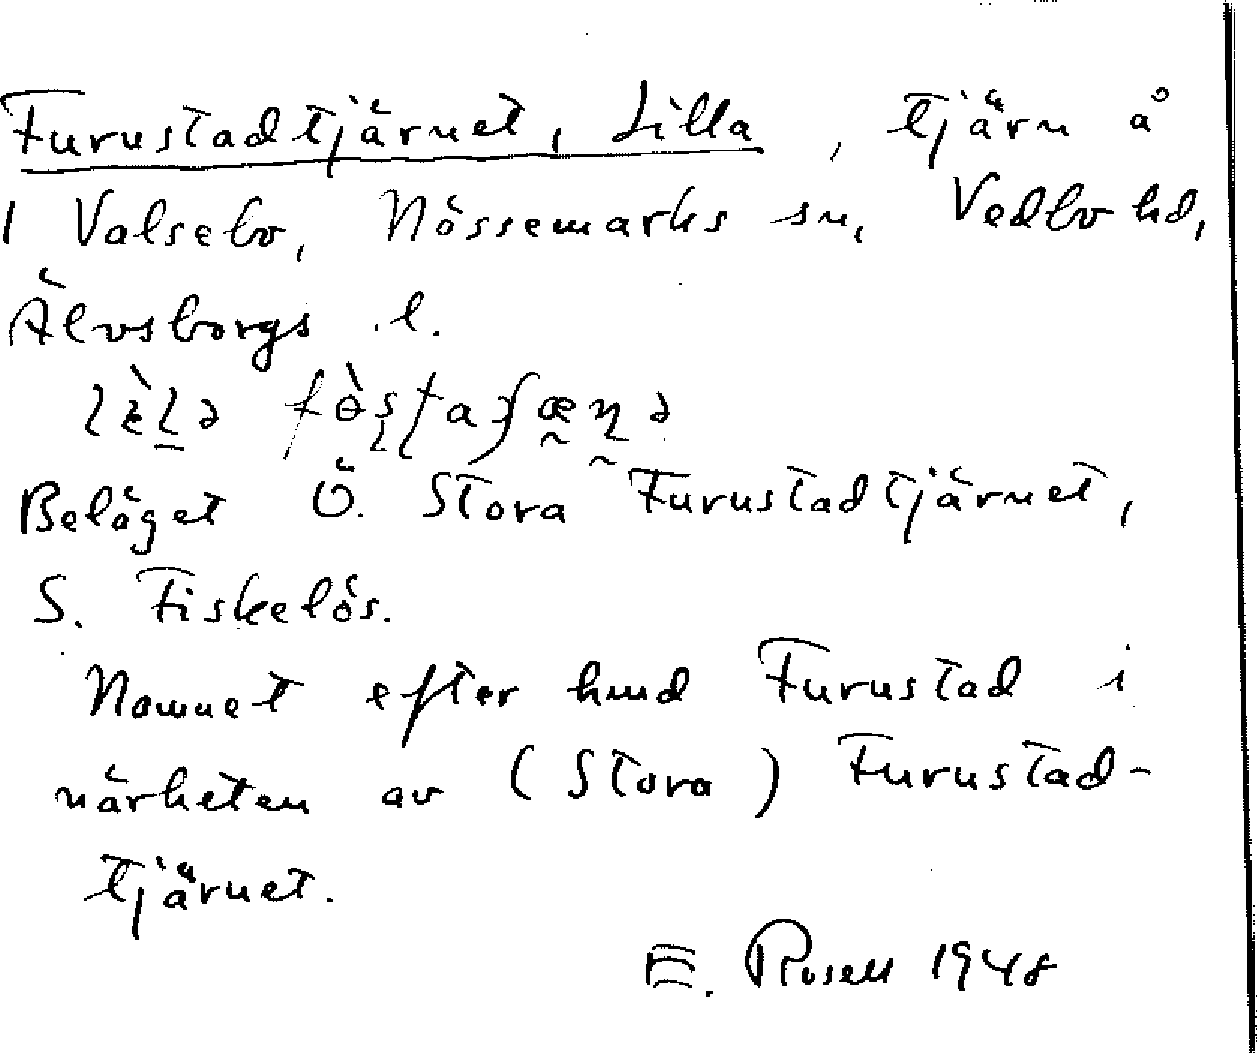 Furustadtjärnet, Lilla, tjärn å
1 Valsebo, Nössemarks sn, Vedbo hd,
Älvsborgs l.
Beläget Ö. Stora Furustadtjärnet,
S. Fiskelös.
Namnet efter hmd Furustad i
närheten av (Stora) Furustad-
tjärnet.
E. Rosell 1948